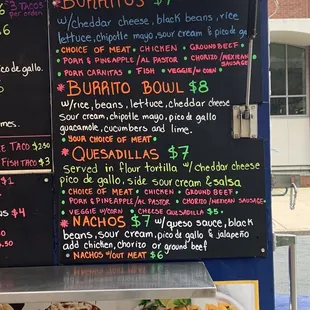 BURRITOS $7
w/cheddar cheese, black beans, rice
lettuce, chipotle mayo, sour cream & pico de ga
CHOICE OF MEAT • CHICKEN • GROUND BEEF •
PORK & PINEAPPLE/AL PASTOR • CHORIZO/MEXICAN SAUSAGE
PORK CARNITAS • FISH • VEGGIE W/CORN •
BURRITO BOWL $8
w/rice, beans, lettuce, cheddar cheese
sour cream, chipotle mayo, pico de gallo
guacamole, cucumbers and lime.
*YOUR CHOICE OF MEAT
QUESADILLAS $7
Served in flour tortilla w/cheddar cheese
pico de gallo, side sour cream & salsa
CHOICE OF MEAT • CHICKEN • GROUND BEEF •
PORK & PINEAPPLE/AL PASTOR • CHORIZO/MEXICAN SAUSAGE
VEGGIE W/CORN • CHEESE QUESADILLA $5 •
NACHOS $7 w/queso sauce, black
beans, sour cream, pico de gallo & jalapeño
add chicken, chorizo or ground beef
*NACHOS W/OUT MEAT $6
3 TACOS
per order
ico de gallo.
mes.
E TACO $2.50
FISH TACO $3
$1
$4